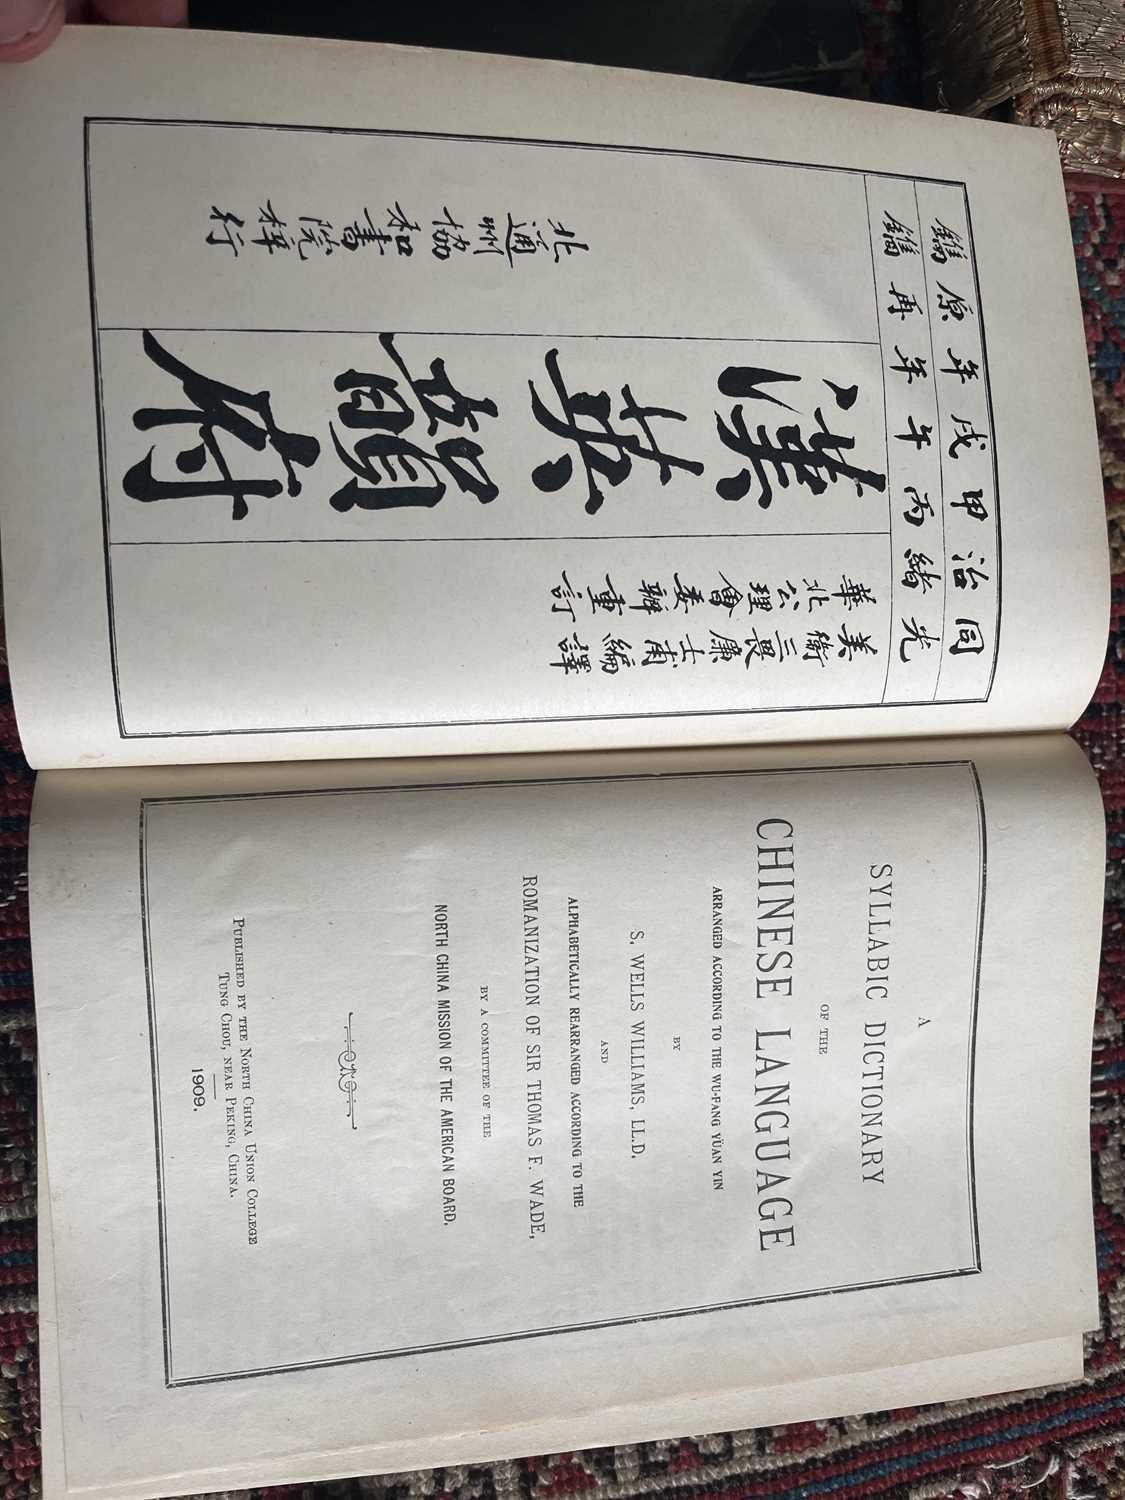 同治甲戌年原鐫
光緒丙午年再鐫
美衛三畏廉士甫編譯
華北公理會委辦重訂
漢英韻府
北通州協和書院梓行
A
SYLLABIC DICTIONARY
OF THE
CHINESE LANGUAGE
ARRANGED ACCORDING TO THE WU-FANG YÜAN YIN
BY
S. WELLS WILLIAMS, LL.D.
AND
ALPHABETICALLY REARRANGED ACCORDING TO THE
ROMANIZATION OF SIR THOMAS F. WADE,
BY A COMMITTEE OF THE
NORTH CHINA MISSION OF THE AMERICAN BOARD.
PUBLISHED BY THE NORTH CHINA UNION COLLEGE
TUNG CHOU, NEAR PEKING, CHINA.
1909.